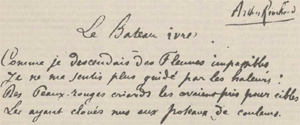 Arth Rimbaud
Le Bateau ivre
Comme je descendais des Fleuves impassibles
Je ne me sentis plus guidé par les haleurs :
Des Peaux-rouges criards les avaient pris pour cibles
Les ayant cloués nus aux poteaux de couleurs.